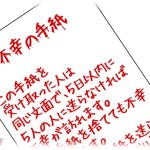 不幸の手紙
この手紙を
受け取った人は
同じ文面で、5日以内に
5人の人に送らなければ
が訪れます。
紙を捨てても不幸